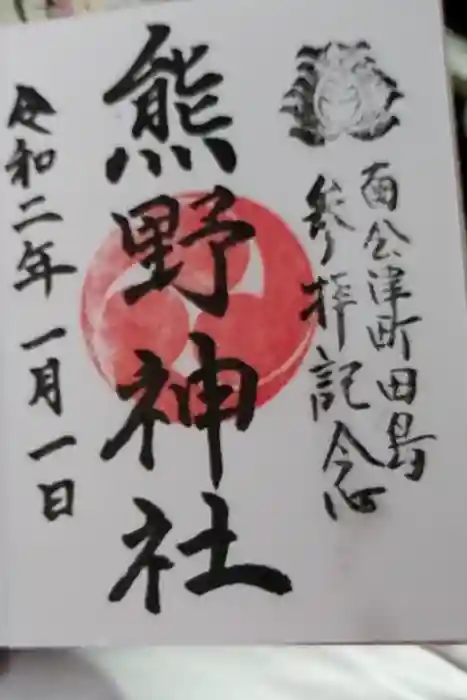 南会津町田島
参拝記念
熊野神社
令和二年一月一日